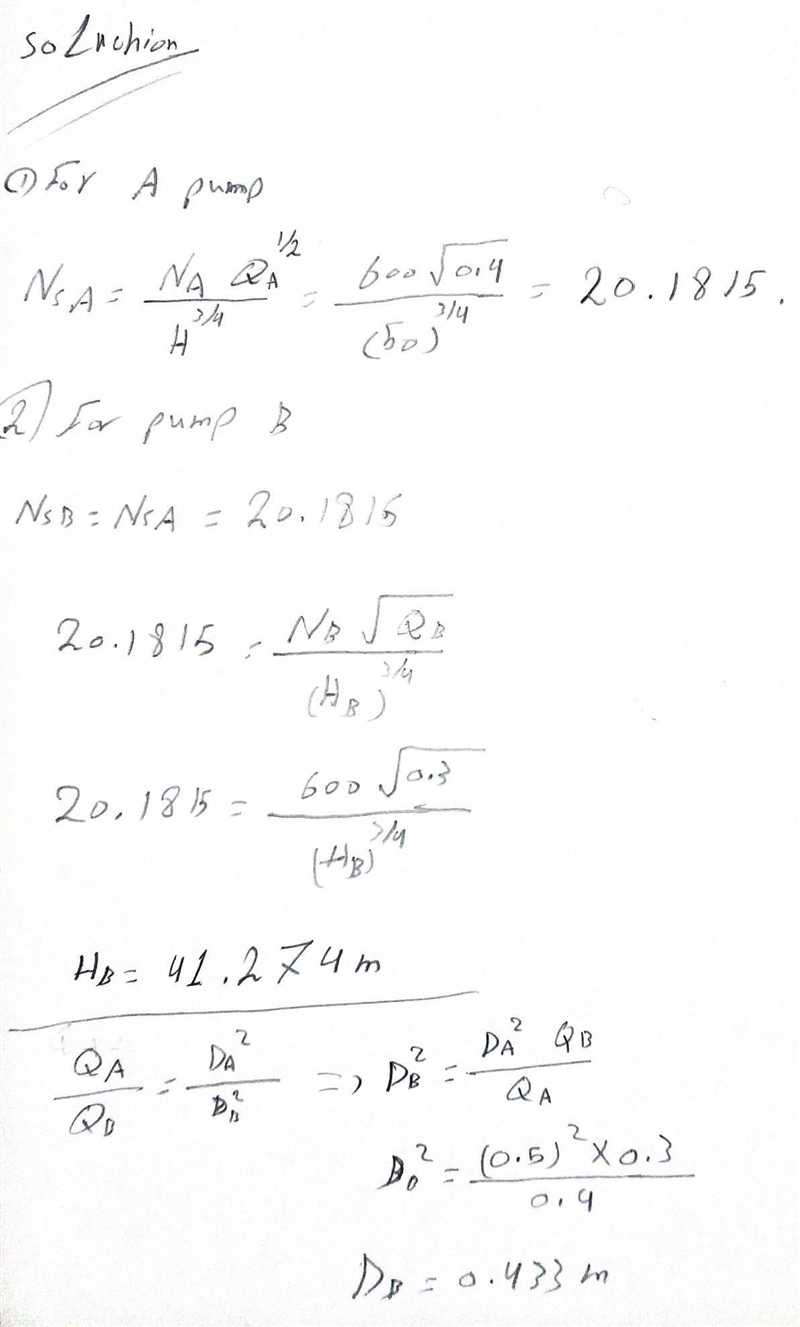 soLuchion
① For A pump
NsA = NA QA^1/2 / H^3/4 = 600 √0.4 / (50)^3/4 = 20.1815.
2) For pump B
NsB = NsA = 20.1815
20.1815 = NB √QB / (HB)^3/4
20.1815 = 600 √0.3 / (HB)^3/4
HB = 41.274 m
QA / QB = DA^2 / DB^2 => DB^2 = DA^2 QB / QA
D0^2 = (0.5)^2 X 0.3 / 0.4
DB = 0.433 m